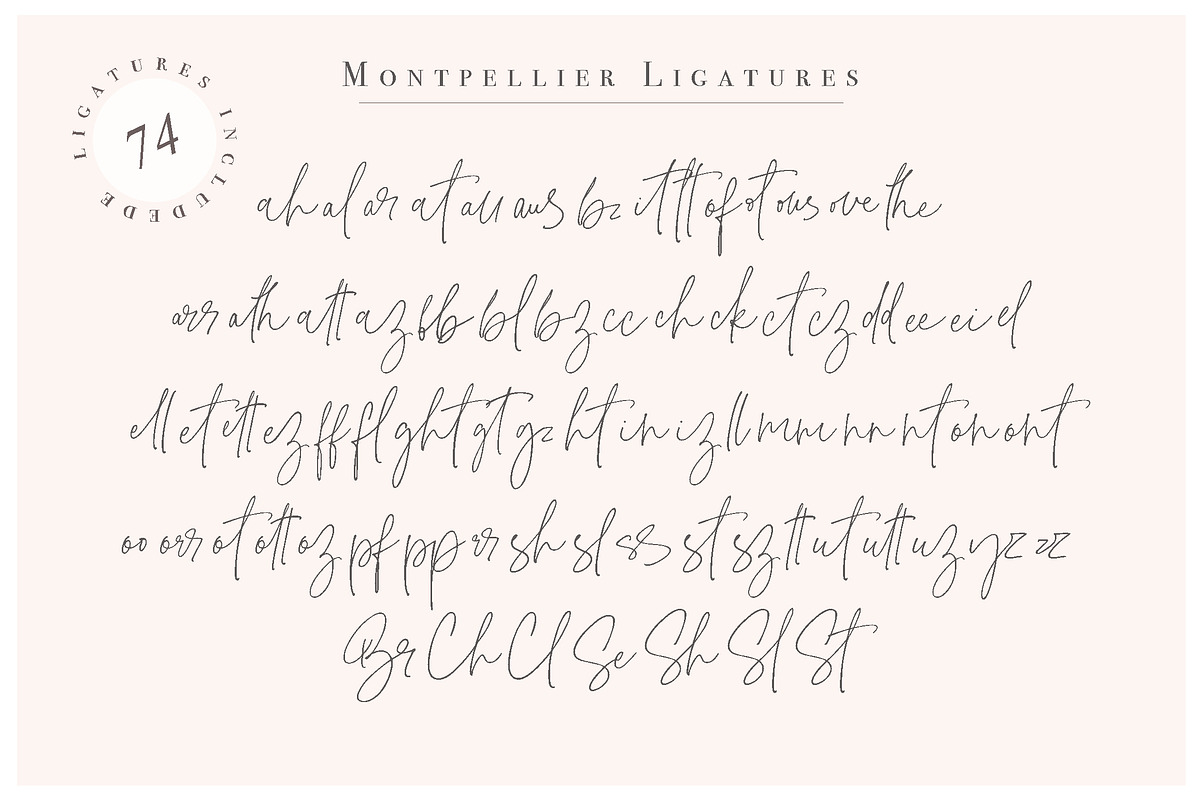 LIGATURES INCLUDEDE
74
MONTPELLIER LIGATURES
ah al ar at au aus bz it tt of ot ous ove the
arr ath att az bb bl bz cc ch ck ct cz dd ee ei el
ell et ett ez ff fl gh gt gz ht in iz ll mm nn nt on ont
oo orr ot ott oz pf pp rr sh sl ss st sz tt ut utt uz yz zz
Br Ch Cl Se Sh Sl St